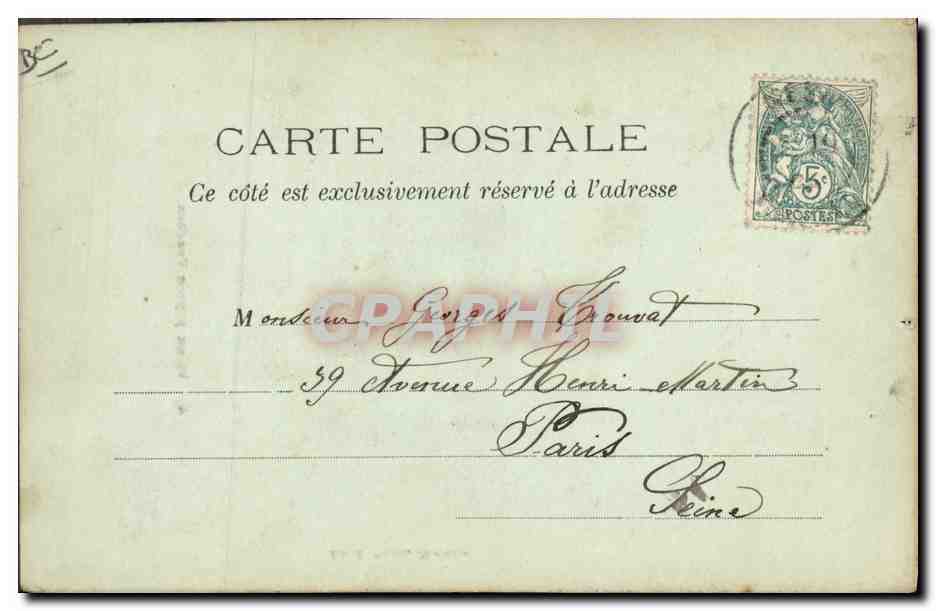 BC
CARTE POSTALE
Ce côté est exclusivement réservé à l'adresse
5c
POSTES
Monsieur Georges Trouvat
CPAPHIL
39 Avenue Henri Martin
Paris
Seine